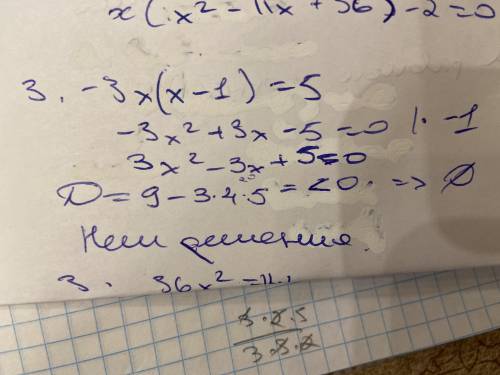 x(x² - 11x + 36) - 2 = 0
3. -3x(x-1) = 5
-3x² + 3x - 5 = 0 | · -1
3x² - 3x + 5 = 0
D = 9 - 3·4·5 = <0. => Ø
Нет решения.
3. 36x² = 11
3·2·5
3·3·2